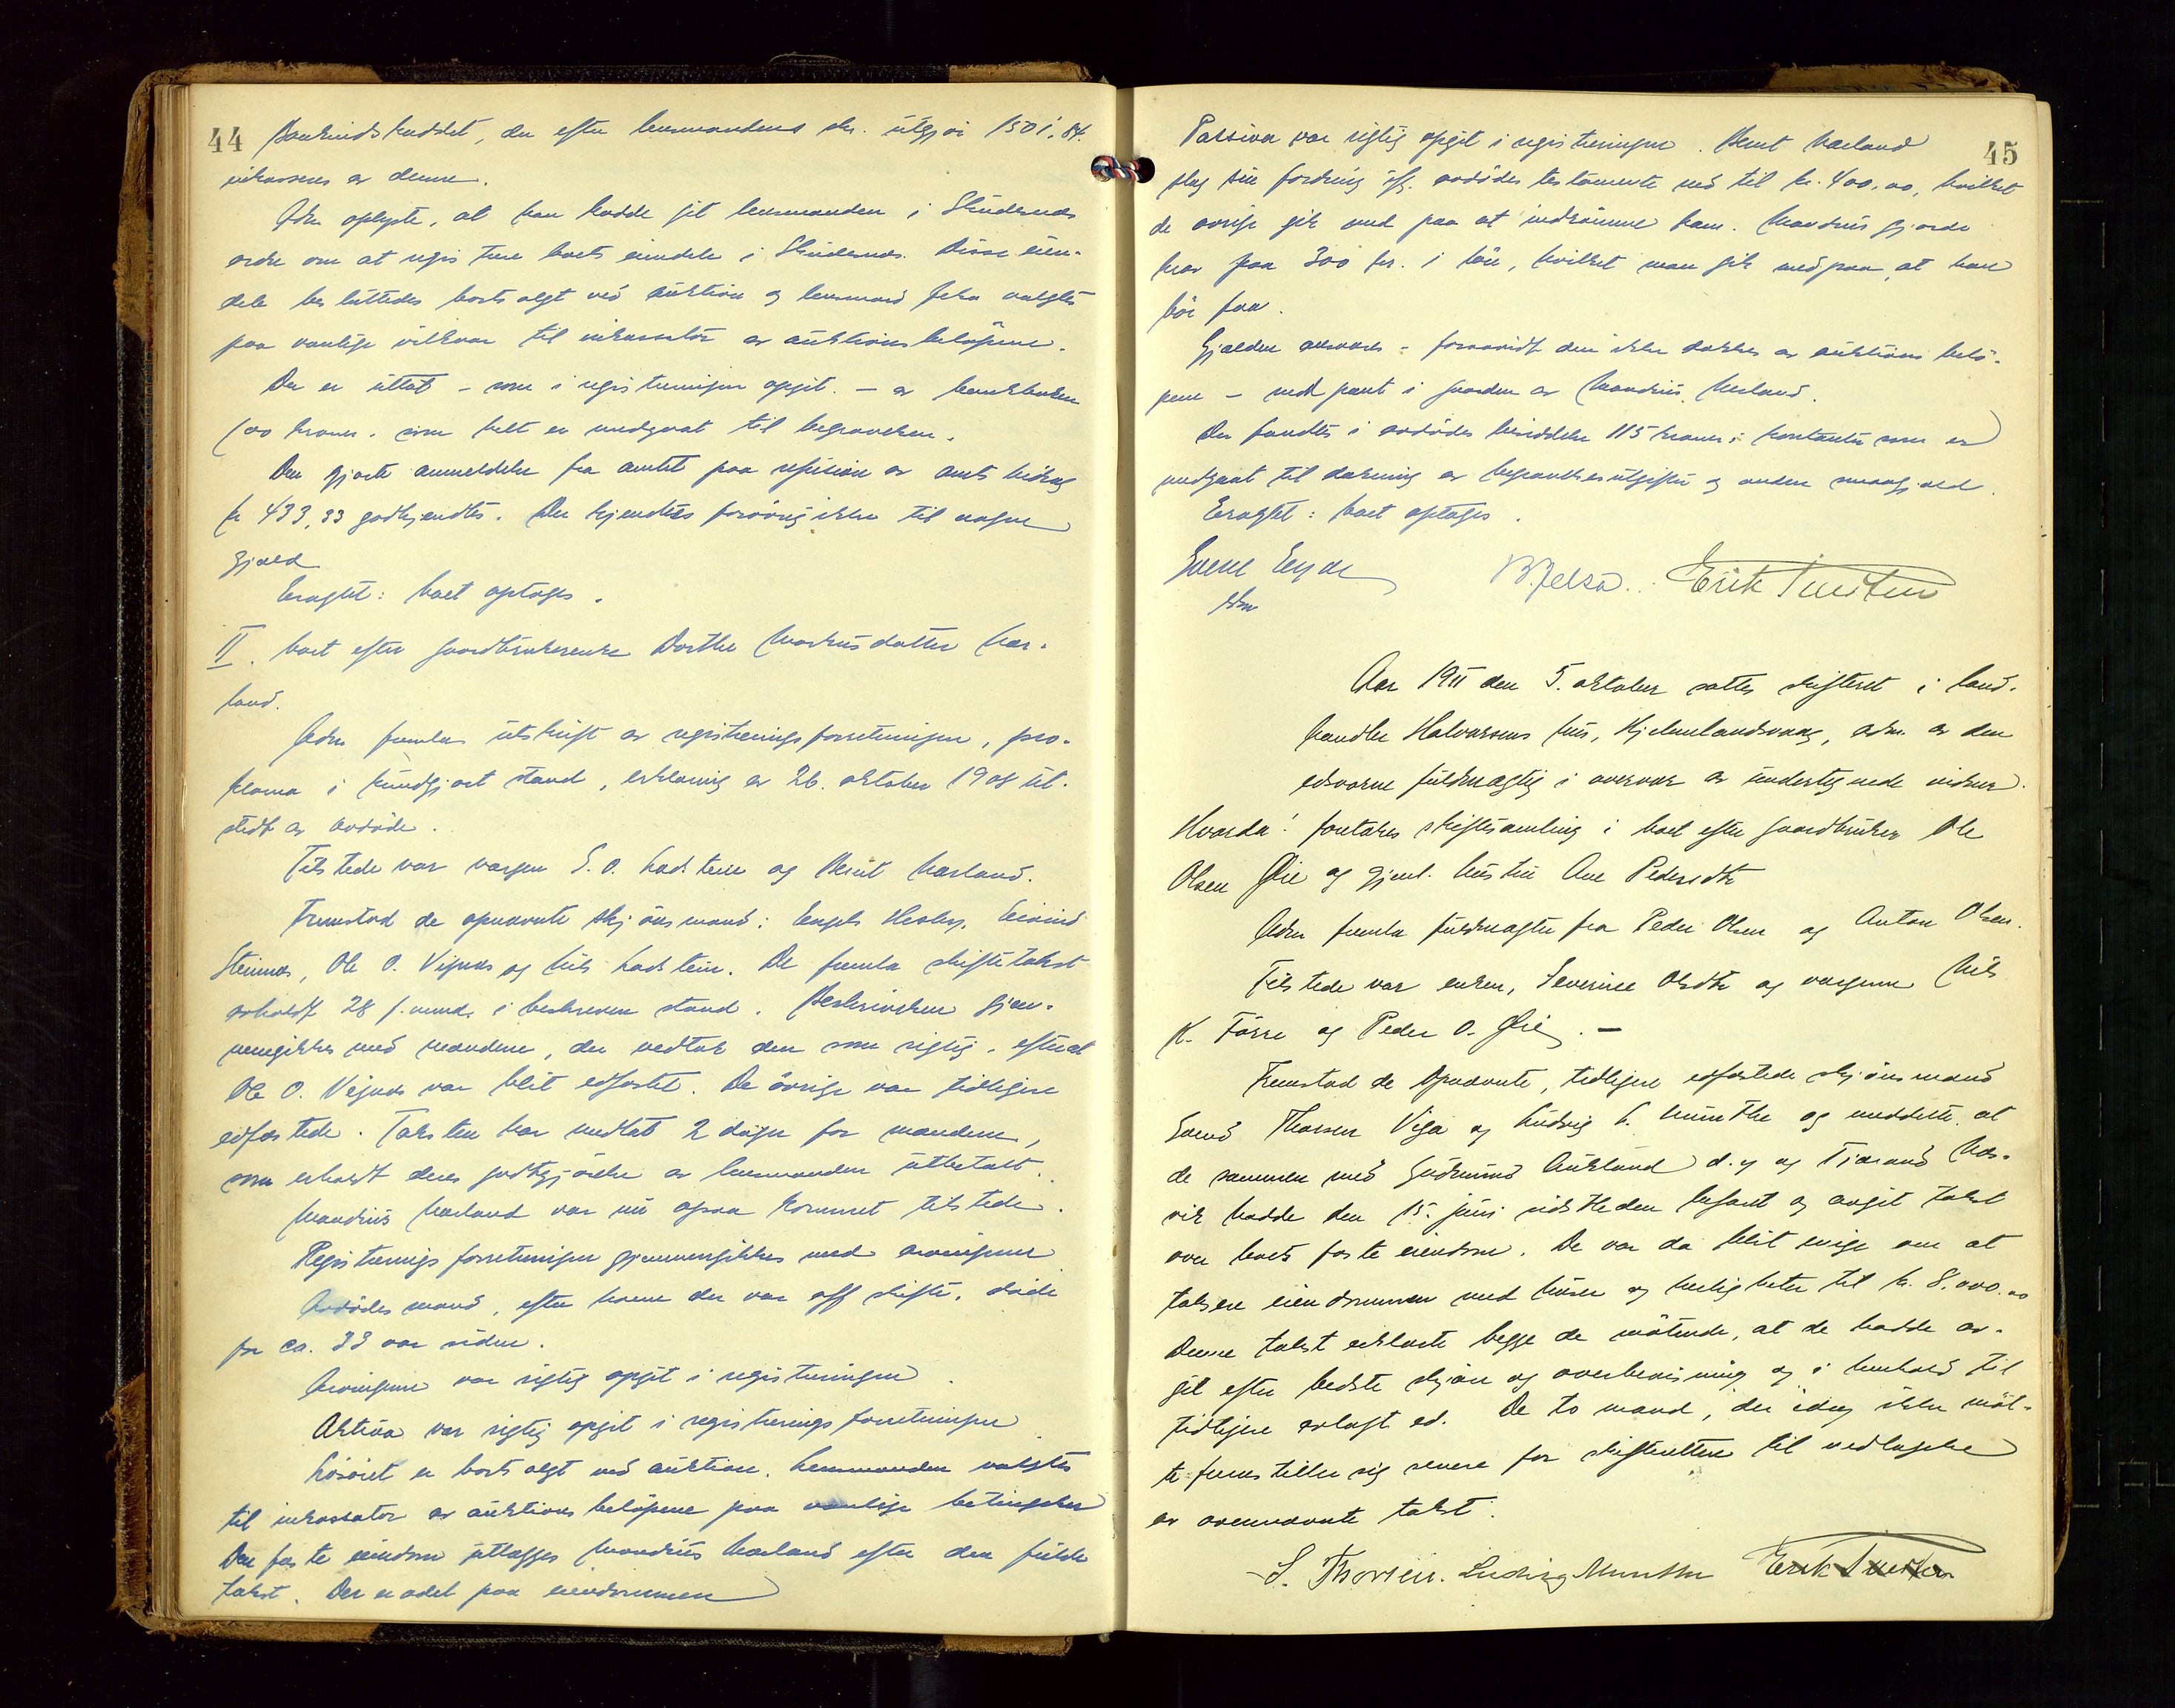 44
Bankindskuddet, der efter lensmandens skr. utgjør 1501,84.
inkasseres av denne.
Adm. oplyste, at han hadde git lensmanden i Skudenes
ordre om at registrere boets eiendele i Skudenes. Disse eien-
dele besluttedes bortsolgt ved auktion og lensmand Jelsa valgtes
paa vanlige vilkaar til inkassator av auktionsbeløpene.
Der er uttat - som i registreringen opgit - av bankboken
100 kroner, som helt er medgaat til begravelsen.
Den gjorte anmeldelse fra amtet paa refusion av amtsbidrag
kr 433,33 godkjendtes. Der kjendtes forøvrig ikke til nogen
gjæld
Eragtet: boet optages.
II. boet efter gaardbrukerenke Dorthe Markusdatter Hau-
land.
Adm fremla utskrift av registreringsforretningen, pro-
klama i kundgjort stand, erklæring av 26. oktober 1908 ut-
stedt av avdøde.
Tilstede var vergen S. O. Ladstein og Bernt Havland.
Fremstod de opnævnte skjønsmænd: Engels Hesby, Eivind
Steinnes, Ole O. Vignes og Nils Ladstein. De fremla skiftetakst
avholdt 28 f. mnd. i beskreven stand. Beskrivelsen gjen-
nemgikkes med mændene, der vedtok den som rigtig, efterat
Ole O. Vignes var blit edfæstet. De øvrige var tidligere
edfæstede. Taksten har medtat 2 dager for mændene,
som erholdt deres godtgjørelse av lensmanden utbetalt.
Mandrius Havland var nu ogsaa kommet tilstede.
Registreringsforretningen gjennemgikkes med arvingene
Avdødes mand, efter hvem der var off skifte, døde
for ca. 33 aar siden.
Arvingene var rigtig opgit i registreringen
Aktiva var rigtig opgit i registreringsforretningen
Løsøret er bortsolgt ved auktion. Lensmanden valgtes
til inkassator av auktionsbeløpene paa vanlige betingelser
Den faste eiendom utlægges Mandrius Havland efter den fulde
takst. Der er odel paa eiendommen
45
Passiva var rigtig opgit i registreringen. Bernt Havland
slog sin fordring iflg. avdødes testamente ned til kr. 400.00, hvilket
de øvrige gik med paa at indrømme ham. Mandrius gjorde
krav paa 300 kr. i løn, hvilket man gik med paa, at han
bør faa.
Gjælden - forsaavidt den ikke dækkes av auktionsbelø-
pene - med pant i gaarden av Mandrius Havland.
Der fandtes i avdødes besiddelse 115 kroner i kontanter som er
medgaat til dækning av begravelsesutgifter og anden smaagjæld.
Eragtet: boet optages.
B. Jelsa. Erik
Adm
Aar 1911 den 5. oktober sattes skifteret i land-
handler Halvorsens hus, Hjelmelandsvaag, adm. av den
edsvorne fuldmægtig i overvær av undertegnede vidner.
Hvorda: foretokes skiftesamling i boet efter gaardbruker Ole
Olsen Øie og gjenl. hustru Ane Pedersdtr
Adm fremla fuldmagter fra Peder Olsen og Anton Olsen.
Tilstede var enken, Severine Olsdtr og vergene Nils
K. Førre og Peder O. Øie. -
Fremstod de opnævnte, tidligere edfæstede skjønsmænd
Svend Thorsen Viga og Ludvig L. Munthe og meddelte, at
de sammen med Gudmund Aukland d. y og Tjerand Næs-
vik hadde den 15. juni sidstleden befaret og avgit takst
over boets faste eiendom. De var da blit enige om at
taksere eiendommen med huser og herligheter til kr. 8.000.00
Denne takst erklærte begge de møtende, at de hadde av-
git efter bedste skjøn og overbevisning og i henhold til
tidligere avlagt ed. De to mænd, der idag ikke møt-
te fremstiller sig senere for skifteretten til vedtagelse
av ovennævnte takst.
S. Thorsen. Ludvig Munthe Erik